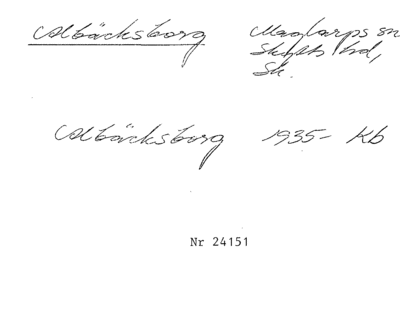 Albäcksborg Maglarps sn
Skytts hd,
Sk.
Albäcksborg 1935- Kb
Nr 24151